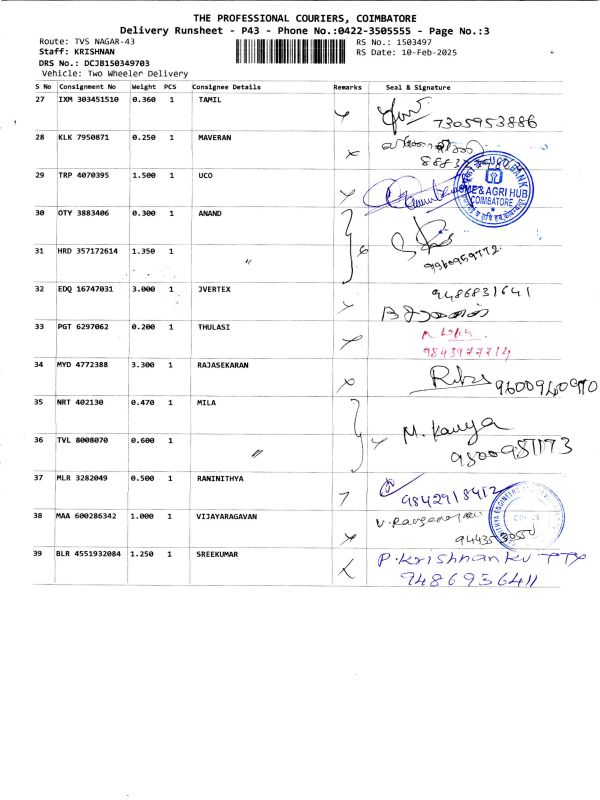 THE PROFESSIONAL COURIERS, COIMBATORE
Delivery Runsheet - P43 - Phone No.:0422-3505555 - Page No.:3
Route: TVS NAGAR-43 RS No.: 1503497
Staff: KRISHNAN RS Date: 10-Feb-2025
DRS No.: DCJB150349703
Vehicle: Two Wheeler Delivery
S No Consignment No Weight PCS Consignee Details Remarks Seal & Signature
27 IXM 303451510 0.360 1 TAMIL
7305953886
28 KLK 7950871 0.250 1 MAVERAN
29 TRP 4070395 1.500 1 UCO
UCO BANK
ME & AGRI HUB
COIMBATORE
30 OTY 3883406 0.300 1 ANAND
31 HRD 357172614 1.350 1 〃
9960959772
32 EDQ 16747031 3.000 1 JVERTEX 9486831641
33 PGT 6297062 0.200 1 THULASI
9843977714
34 MYD 4772388 3.300 1 RAJASEKARAN
9600940970
35 NRT 402130 0.470 1 MILA M. Kavya
36 TVL 8008070 0.600 1 〃
37 MLR 3282049 0.500 1 RANINITHYA
9842918412
38 MAA 600286342 1.000 1 VIJAYARAGAVAN
39 BLR 4551932084 1.250 1 SREEKUMAR P. Krishnan Kutty
9486936411